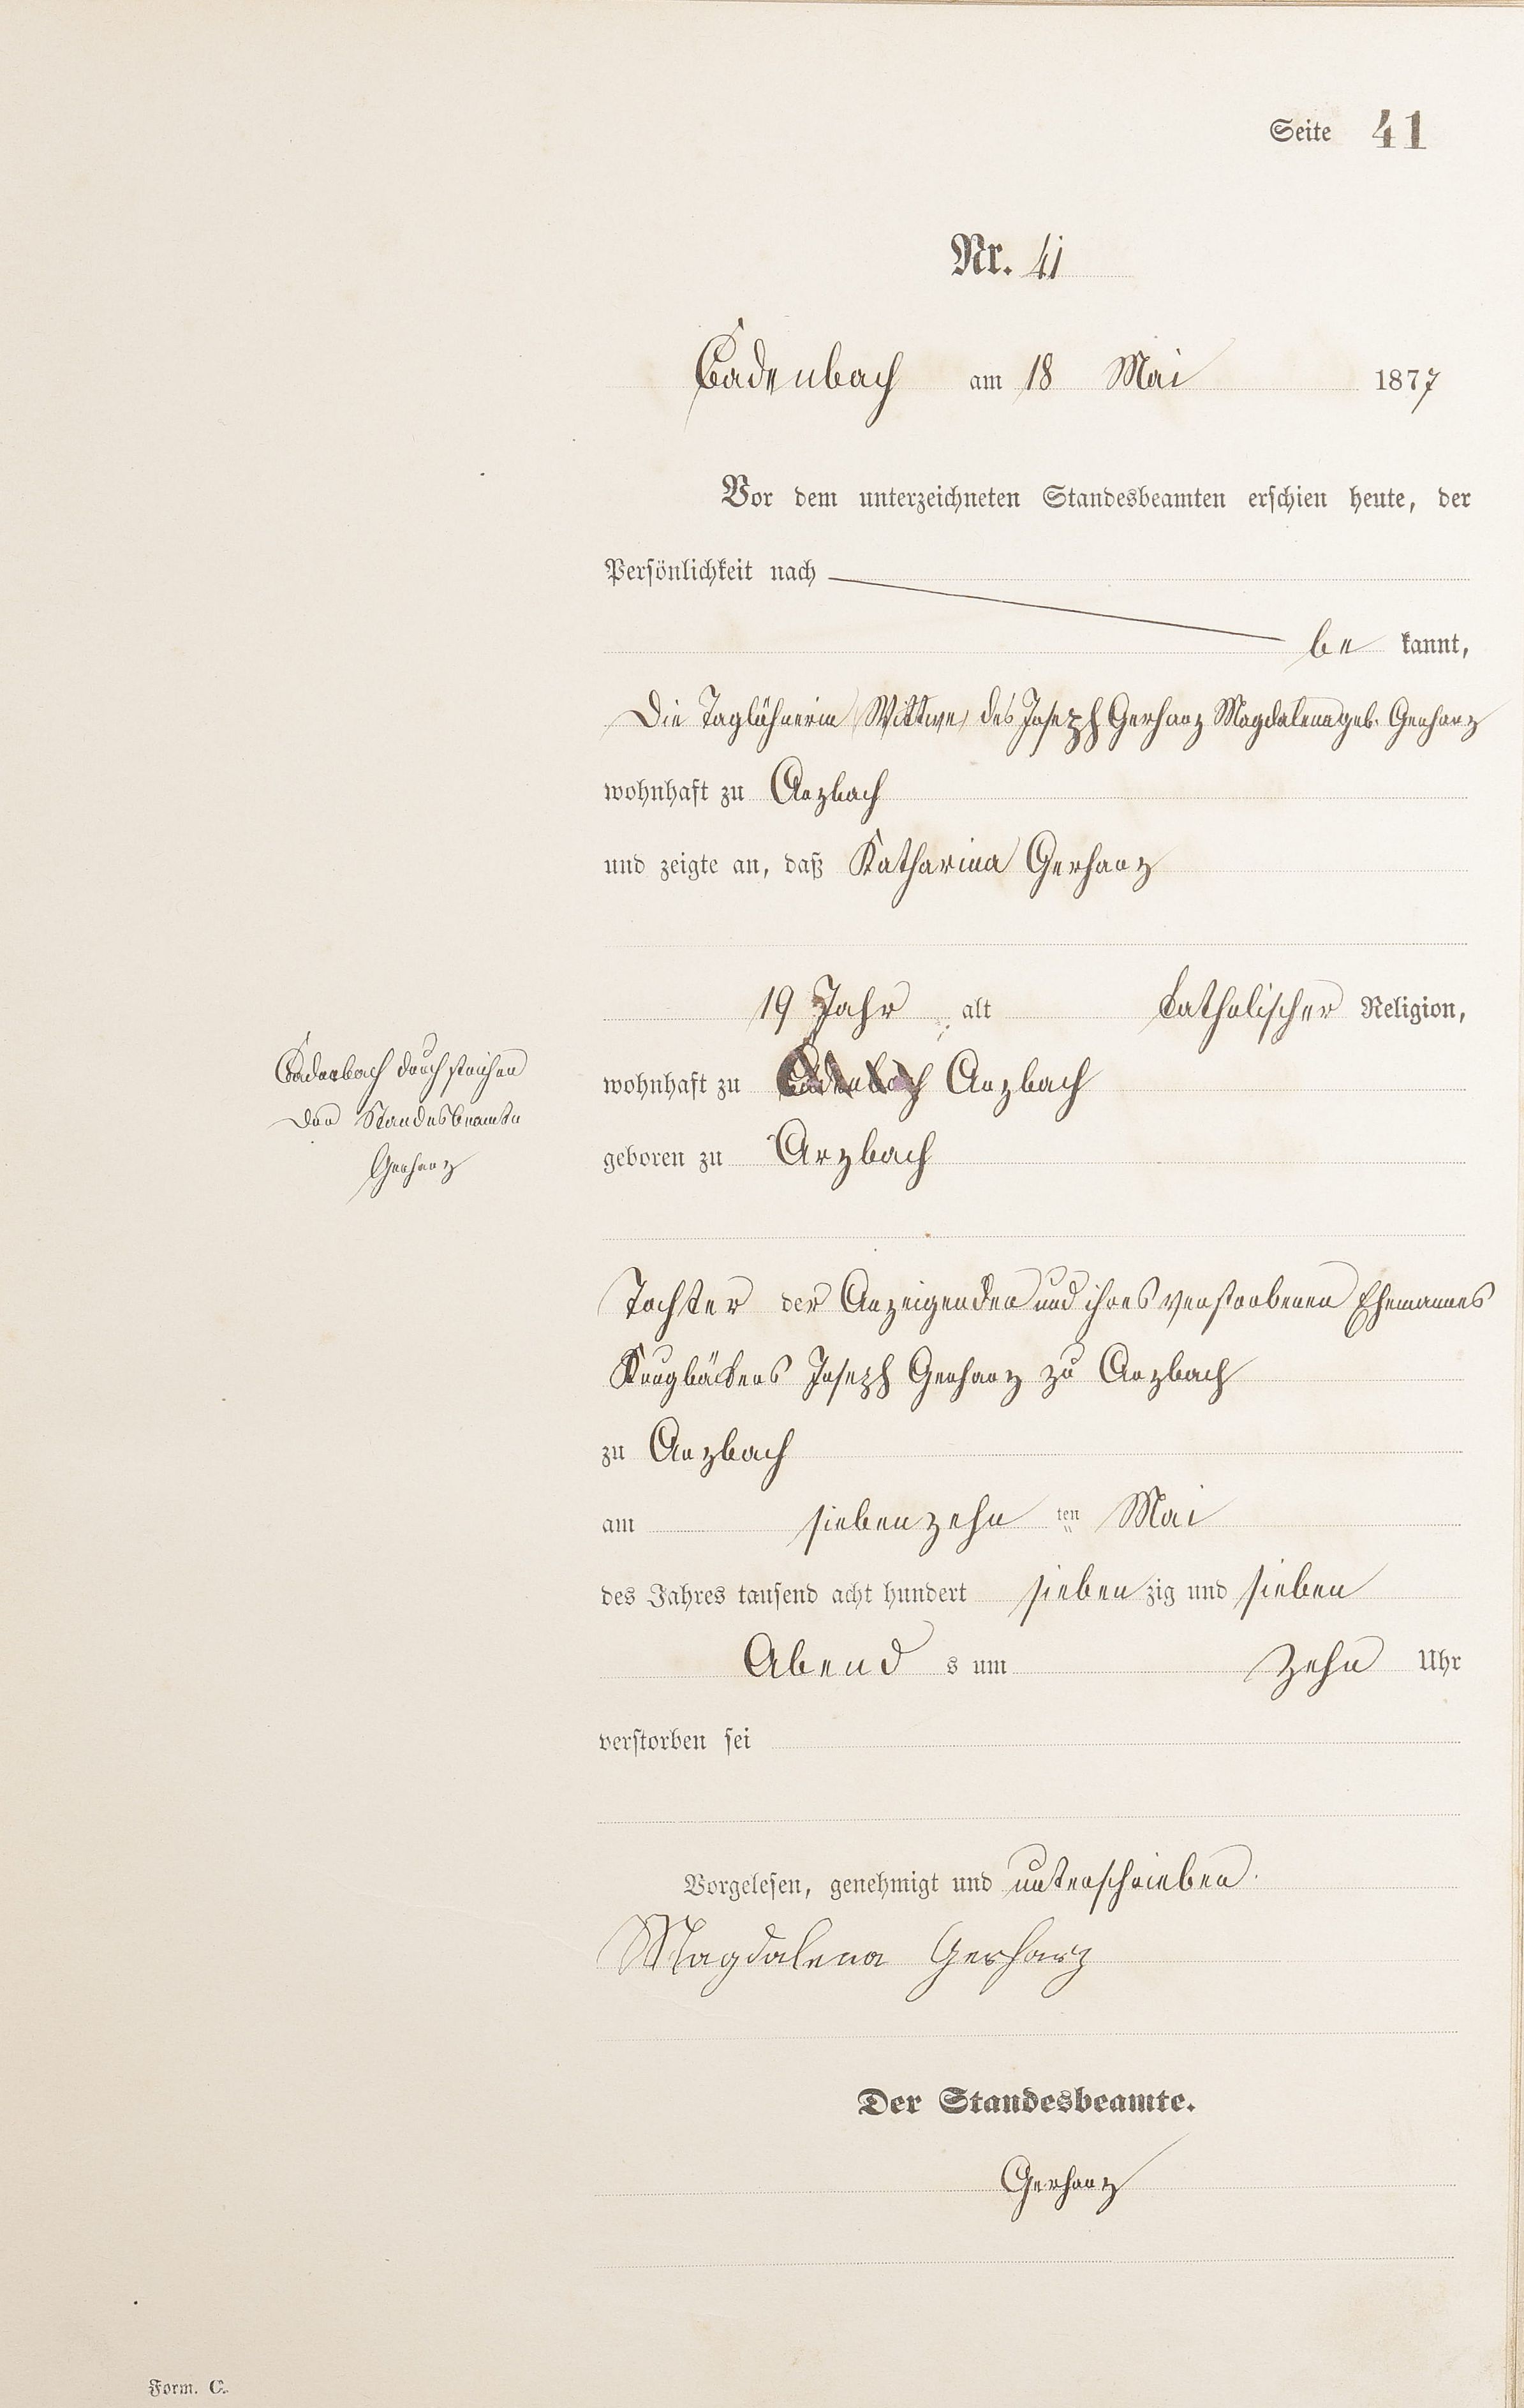 Seite 41
Nr. 41
Cadenbach am 18 Mai 1877
Vor dem unterzeichneten Standesbeamten erschien heute, der
Persönlichkeit nach
be kannt,
Die Taglöhnerin Wittwe, des Joseph Gerharz Magdalena geb. Gerharz
wohnhaft zu Arzbach
und zeigte an, daß Katharina Gerharz
19 Jahr alt katholischer Religion,
Cadenbach durchstrichen
Der Standesbeamte
Gerharz
wohnhaft zu Cadenbach Arzbach
geboren zu Arzbach
Tochter der Anzeigenden und ihres verstorbenen Ehemannes
Krugbäckers Joseph Gerharz zu Arzbach
zu Arzbach
am siebenzehn ten Mai
des Jahres tausend acht hundert sieben zig und sieben
Abend s um zehn Uhr
verstorben sei
Vorgelesen, genehmigt und unterschrieben.
Magdalena Gerharz
Der Standesbeamte.
Gerharz
Form. C.